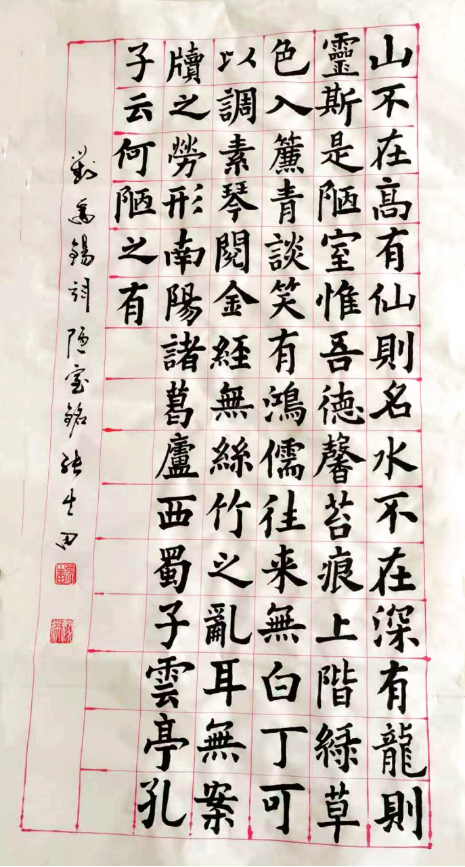 山不在高有仙則名水不在深有龍則
靈斯是陋室惟吾德馨苔痕上階綠草
色入簾青談笑有鴻儒往来無白丁可
以調素琴閱金經無絲竹之亂耳無案
牘之勞形南陽諸葛廬西蜀子雲亭孔
子云何陋之有
劉禹錫陋室銘張生田